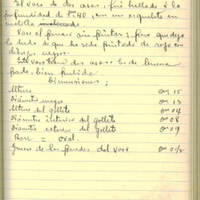 El vaso de dos asas, fué hallado á la
profundidad de 1.40, con un orquetito en
medalla
Vaso al parecer sin pintar; pero que dejó
la duda de que ha sido pintado de rojo con
dibujos negros.
Este vaso tiene dos asas. Es de buena
pasta, bien pulido.
Dimensiones:
Altura 0m 15
Diámetro mayor 0m 13
Altura del gollete 0m 04
Diámetro interior del gollete 0m 08
Diámetro exterior del gollete 0m 09
Base = oval.
Grueso de las paredes del vaso 0m 0½